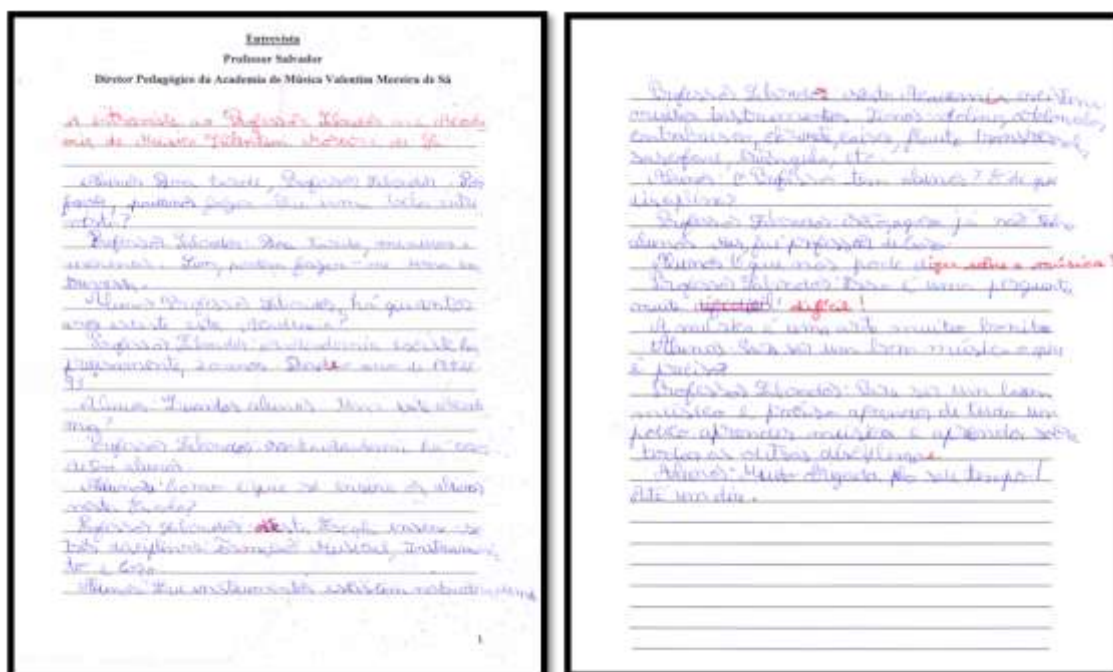 Entrevista
Professor Salvador
Diretor Pedagógico da Academia de Música Valentim Moreira de Sá
A entrevista ao Professor Salvador na Acade
mia de Música Valentim Moreira de Sá
Alunos: Boa tarde, Professor Salvador. Por
favor, podemos fazer-lhe uma entre
vista?
Professor Salvador: Boa tarde, meninos e
meninas. Sim, podem fazer-me
Alunos: Professor Salvador, há quantos
anos existe esta Academia?
Professor Salvador: A Academia existe há
precisamente, 20 anos. Desde o ano de
Alunos: Quantos alunos tem esta Acade
mia?
Professor Salvador:
alunos.
Alunos: Como é que se ensina os alunos
nesta Escola?
Professor Salvador: Nesta Escola ensina-se
três disciplinas: Formação Musical, Instrumen
to e Coro.
Alunos: Que instrumentos existem
1
Professor Salvador: nesta Academia existem
muitos instrumentos. Temos violino,
contrabaixo, flauta transversal,
saxofone, triângulo, etc.
Alunos: O Professor tem alunos? E de que
disciplina?
Professor Salvador: agora já não tenho
alunos mas fui professor de Coro.
Alunos: O que nos pode dizer sobre a música?
Professor Salvador: Essa é uma pergunta
muito difícil!
A música é uma arte muito bonita
Alunos: Para ser um bom músico o que
é preciso?
Professor Salvador: Para ser um bom
músico é preciso aprender de tudo um
pouco aprender música e aprender sobre
todas as outras disciplinas.
Alunos: Muito obrigada pelo seu tempo!
Até um dia.